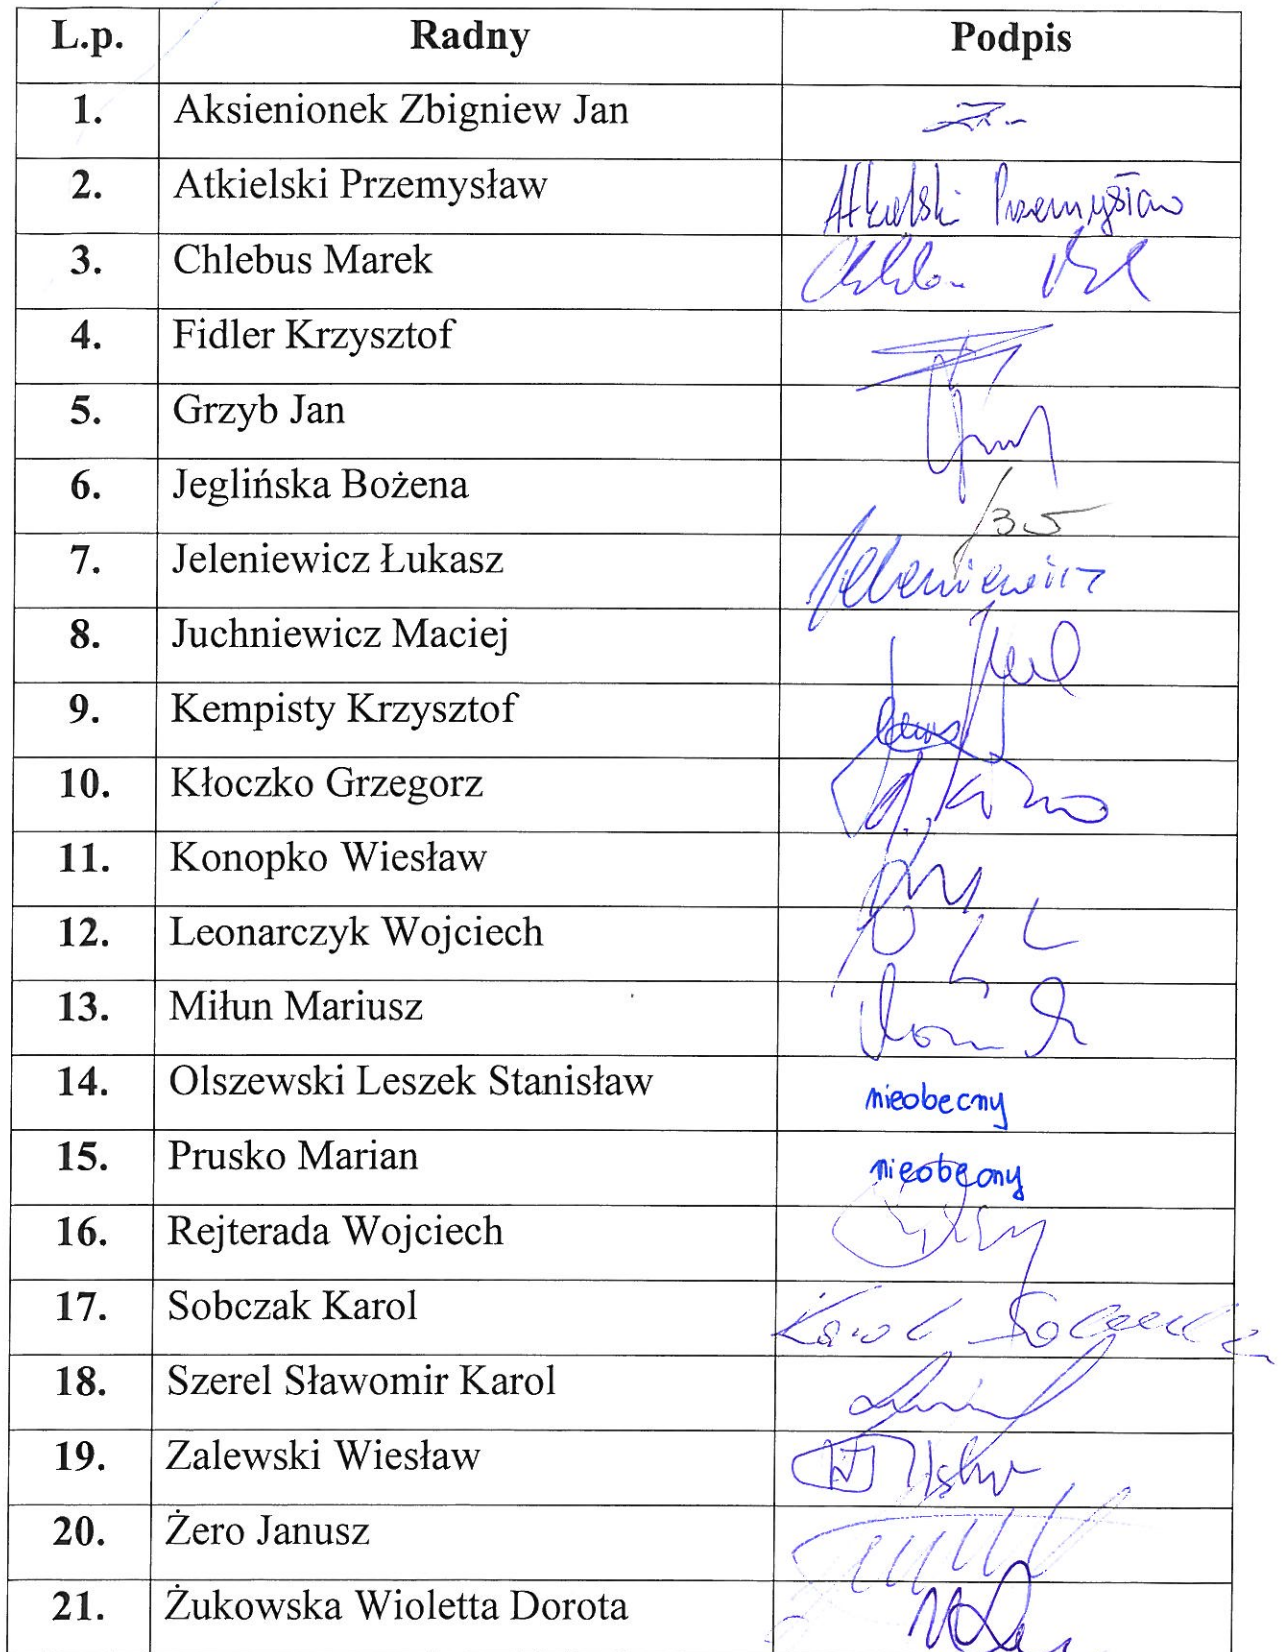 L.p. Radny Podpis
1. Aksienionek Zbigniew Jan
2. Atkielski Przemysław Atkielski Przemysław
3. Chlebus Marek
4. Fidler Krzysztof
5. Grzyb Jan
6. Jeglińska Bożena
7. Jeleniewicz Łukasz Jeleniewicz
8. Juchniewicz Maciej
9. Kempisty Krzysztof
10. Kłoczko Grzegorz
11. Konopko Wiesław
12. Leonarczyk Wojciech
13. Miłun Mariusz
14. Olszewski Leszek Stanisław nieobecny
15. Prusko Marian nieobecny
16. Rejterada Wojciech
17. Sobczak Karol Karol Sobczak
18. Szerel Sławomir Karol
19. Zalewski Wiesław
20. Żero Janusz
21. Żukowska Wioletta Dorota